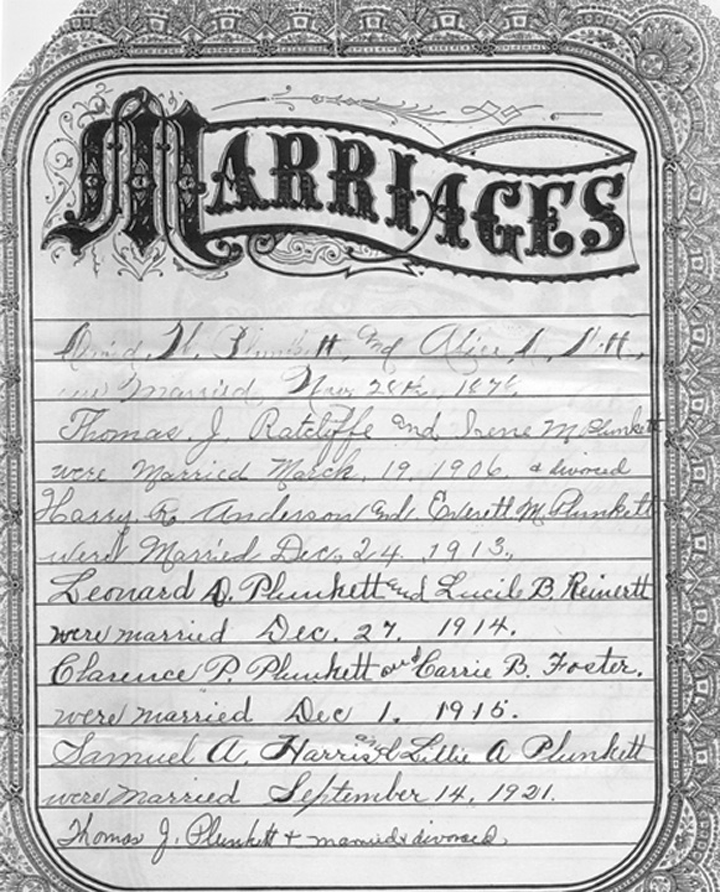 MARRIAGES
David. H. Plunkett, and Alice, A.
Married, Nov, 28th, 187
Thomas. J. Ratcliffe and Irene M Plunkett
were Married March, 19, 1906. & divoced
Harry. R. Anderson and. Everett M. Plunkett
were Married Dec, 24, 1913.,
Leonard D. Plunkett and Lucile B Reinertt
were married Dec. 27. 1914.
Clarence P. Plunkett and Carrie B. Foster.
were married Dec 1. 1915.
Samuel A. Harris and Lillie A Plunkett
were Married September 14, 1921.
Thomas J. Plunkett + married & divorced